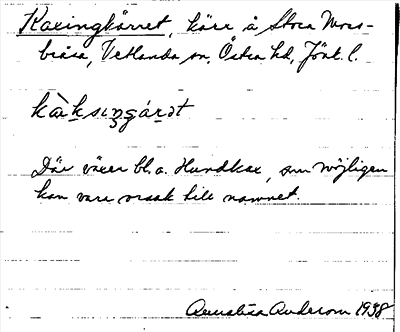 Kaxingkärret, kärr å Stora Moss-
bråsa, Vetlanda sn, Östra hd, Jönk. l.
kàksiŋgárət
Där växer bl. a. Hundkax, som möjligen
kan vara orsak till namnet.
Annalisa Anderson 1938